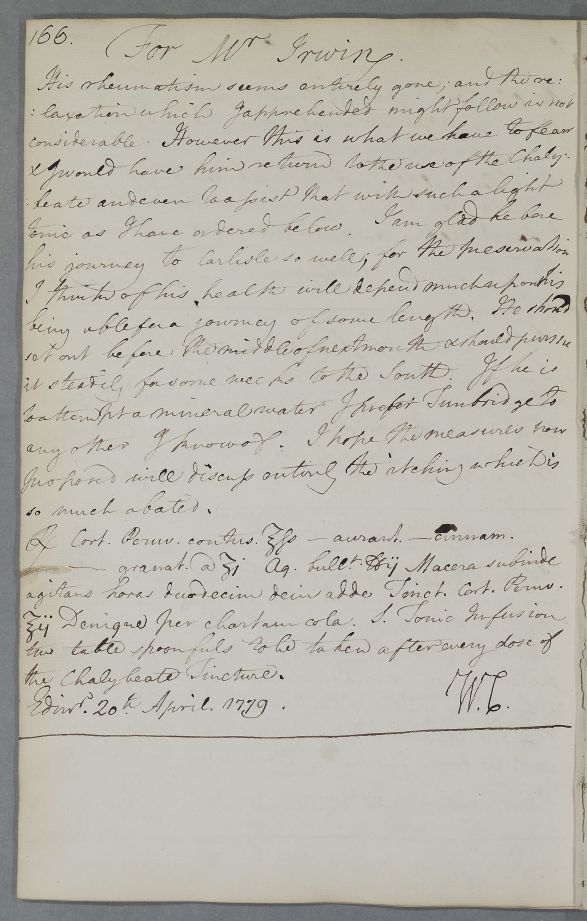 166.
For Mr Irwin.
His rheumatism seems entirely gone, and the re:
: laxation which I apprehended might follow is not
considerable. However this is what we have to fear
& I would have him return to the use of the Chaly:
: beate and even to assist that with such a light
tonic as I have ordered below. I am glad he bore
his journey to Carlisle so well, for the preservation
I think of his health will depend much upon his
being able for a journey of some length. He should
set out before the middle of next month & should pursue
it steadily for some weeks to the South. If he is
to attempt a mineral water I prefer Tunbridge to
any other I know of. I hope the measures now
proposed will discuss entirely the itching which is
so much abated.
℞ Cort. Peruv. contus. ℥ſs — aurant. — cinnam.
— granat. a ʒj Aq. bullt. ℔ij Macera subinde
agitans horas duodecim dein adde Tinct. Cort. Peruv.
℥ij Denique per chartam cola. S. Tonic Infusion
two table spoonfuls to be taken after every dose of
the Chalybeate Tincture.
Edinr. 20th April. 1779.
W.C.